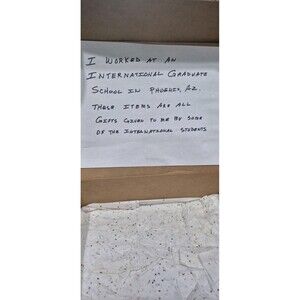 I WORKED AT AN
INTERNATIONAL GRADUATE
SCHOOL IN PHOENIX, AZ.
THESE ITEMS ARE ALL
GIFTS GIVEN TO ME BY SOME
OF THE INTERNATIONAL STUDENTS